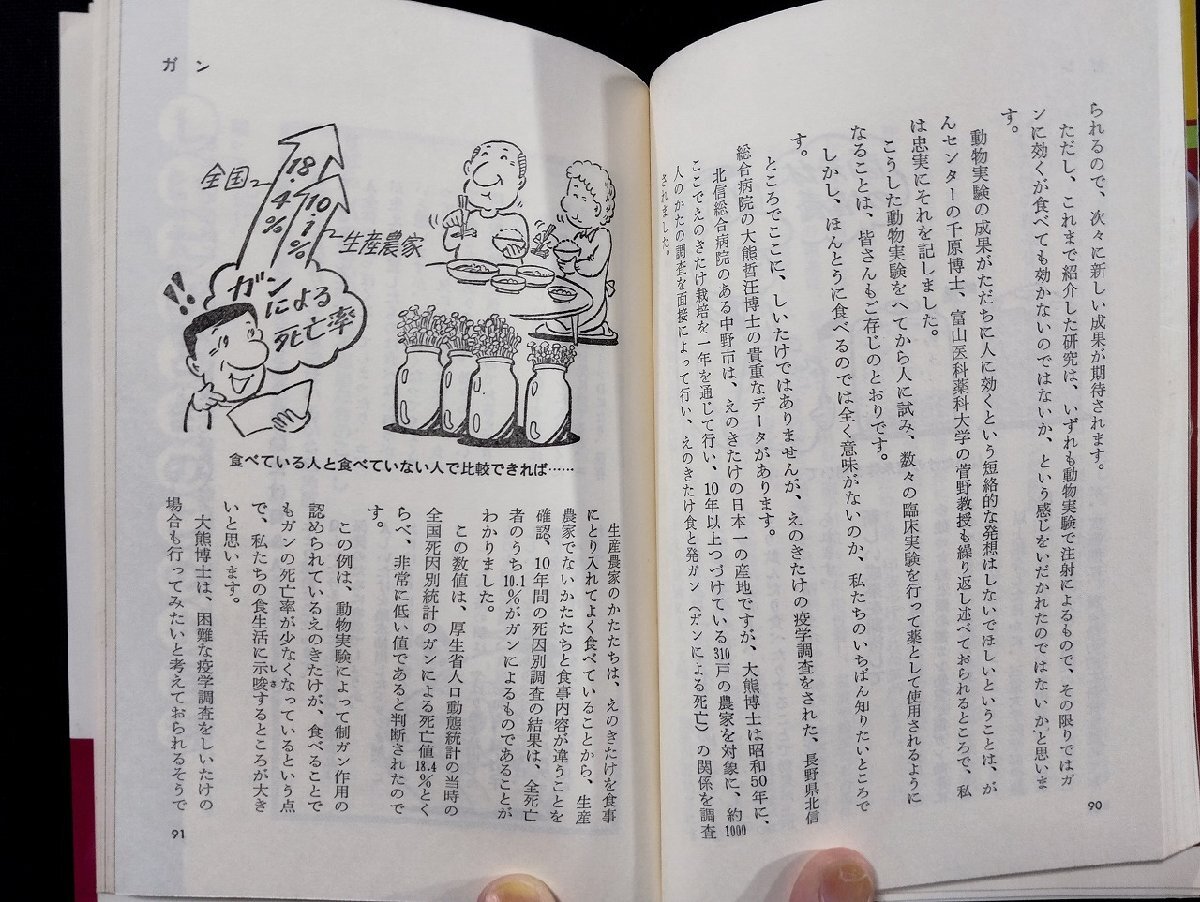 られるので、次々に新しい成果が期待されます。
ただし、これまで紹介した研究は、いずれも動物実験で注射によるもので、その限りではガ
ンに効くが食べても効かないのではないか、という感じをいだかれたのではないかと思いま
す。
動物実験の成果がただちに人に効くという短絡的な発想はしないでほしいということは、が
んセンターの千原博士、富山医科薬科大学の菅野教授も繰り返し述べておられるところで、私
は忠実にそれを記しました。
こうした動物実験をへてから人に試み、数々の臨床実験を行って薬として使用されるように
なることは、皆さんもご存じのとおりです。
しかし、ほんとうに食べるのでは全く意味がないのか、私たちのいちばん知りたいところで
す。
ところでここに、しいたけではありませんが、えのきたけの疫学調査をされた、長野県北信
総合病院の大熊哲汪博士の貴重なデータがあります。
北信総合病院のある中野市は、えのきたけの日本一の産地ですが、大熊博士は昭和50年に、
ここでえのきたけ栽培を一年を通じて行い、10年以上つづけている310戸の農家を対象に、約1000
人のかたの調査を面接によって行い、えのきたけ食と発ガン(ガンによる死亡)の関係を調査
されました。
90
ガン
全国
18.4%
10.1%
生産農家
ガン
による
死亡率
!!
食べている人と食べていない人で比較できれば……
生産農家のかたたちは、えのきたけを食事
にとり入れてよく食べていることから、生産
農家でないかたたちと食事内容が違うことを
確認、10年間の死因別調査の結果は、全死亡
者のうち10.1%がガンによるものであることが
わかりました。
この数値は、厚生省人口動態統計の当時の
全国死因別統計のガンによる死亡値18.4%とく
らべ、非常に低い値であると判断されたので
す。
この例は、動物実験によって制ガン作用の
認められているえのきたけが、食べることで
もガンの死亡率が少なくなっているという点
で、私たちの食生活に示唆するところが大き
しさ
いと思います。
大熊博士は、困難な疫学調査をしいたけの
場合も行ってみたいと考えておられるそうで
91